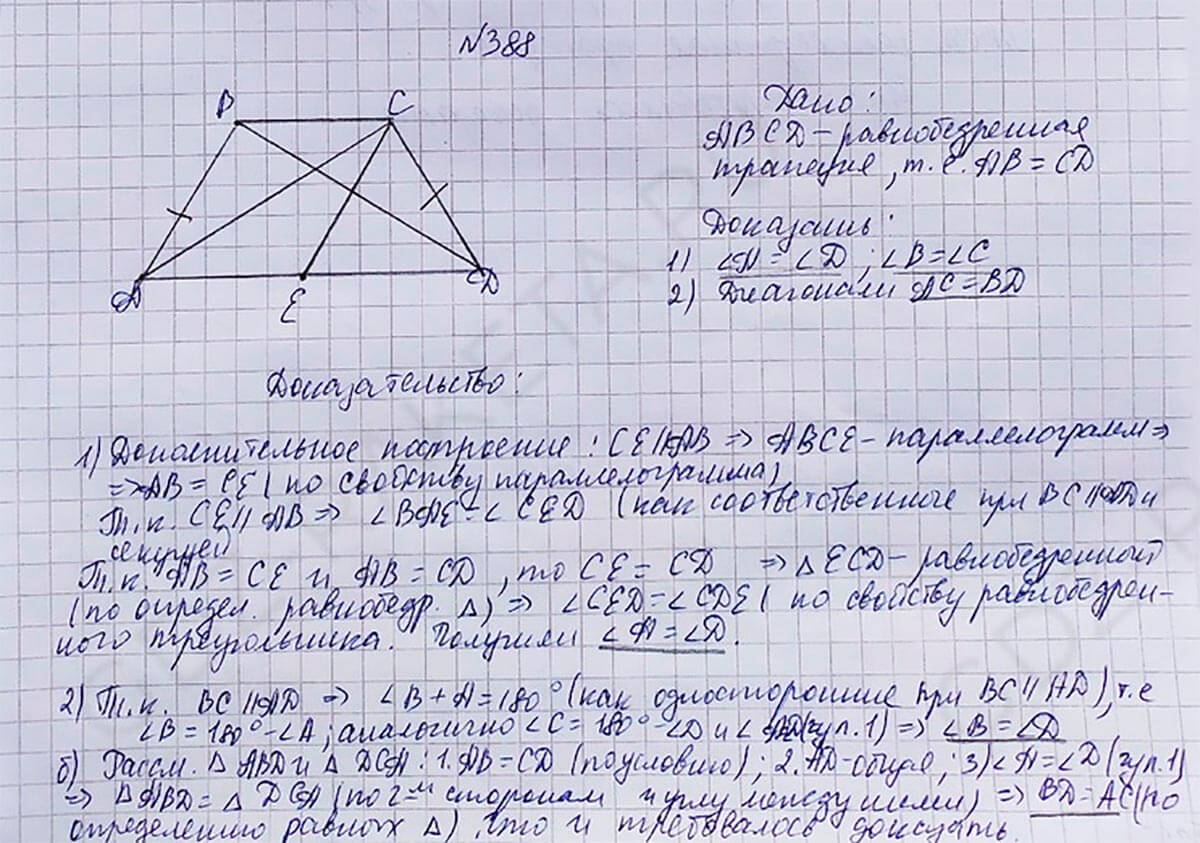 №388
B
C
A
E
D
Дано:
ABCD – равнобедренная
трапеция, т.е. AB = CD
Доказать:
1) ∠A = ∠D; ∠B = ∠C
2) Диагонали AC = BD
Доказательство:
1) Дополнительное построение: CE∥AB ⇒ ABCE – параллелограмм ⇒
⇒ AB = CE (по свойству параллелограмма)
Т.к. CE∥AB ⇒ ∠BAE = ∠CED (как соответственные при BC∥AD и
секущей)
Т.к. AB = CE и AB = CD, то CE = CD ⇒ △ECD – равнобедренный
(по определ. равнобедр. △) ⇒ ∠CED = ∠CDE (по свойству равнобедрен-
ного треугольника. Получили ∠A = ∠D.
2) Т.к. BC∥AD ⇒ ∠B + A = 180° (как односторонние при BC∥AD), т.е
∠B = 180° - ∠A; аналогично ∠C = 180° - ∠D и ∠ (из п.1) ⇒ ∠B = ∠D
б) Рассм. △ABD и △DCA: 1. AB = CD (по условию); 2. AD – общая; 3) ∠A = ∠D (из п.1)
⇒ △ABD = △DCA (по 2-м сторонам и углу между ними) ⇒ BD = AC (по
определению равных △), что и требовалось доказать.